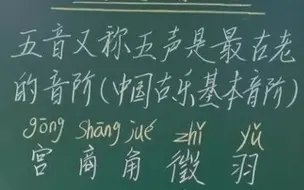 五音又称五声是最古老
的音阶(中国古乐基本音阶)
gōng shāng jué zhǐ yǔ
宫 商 角 徵 羽